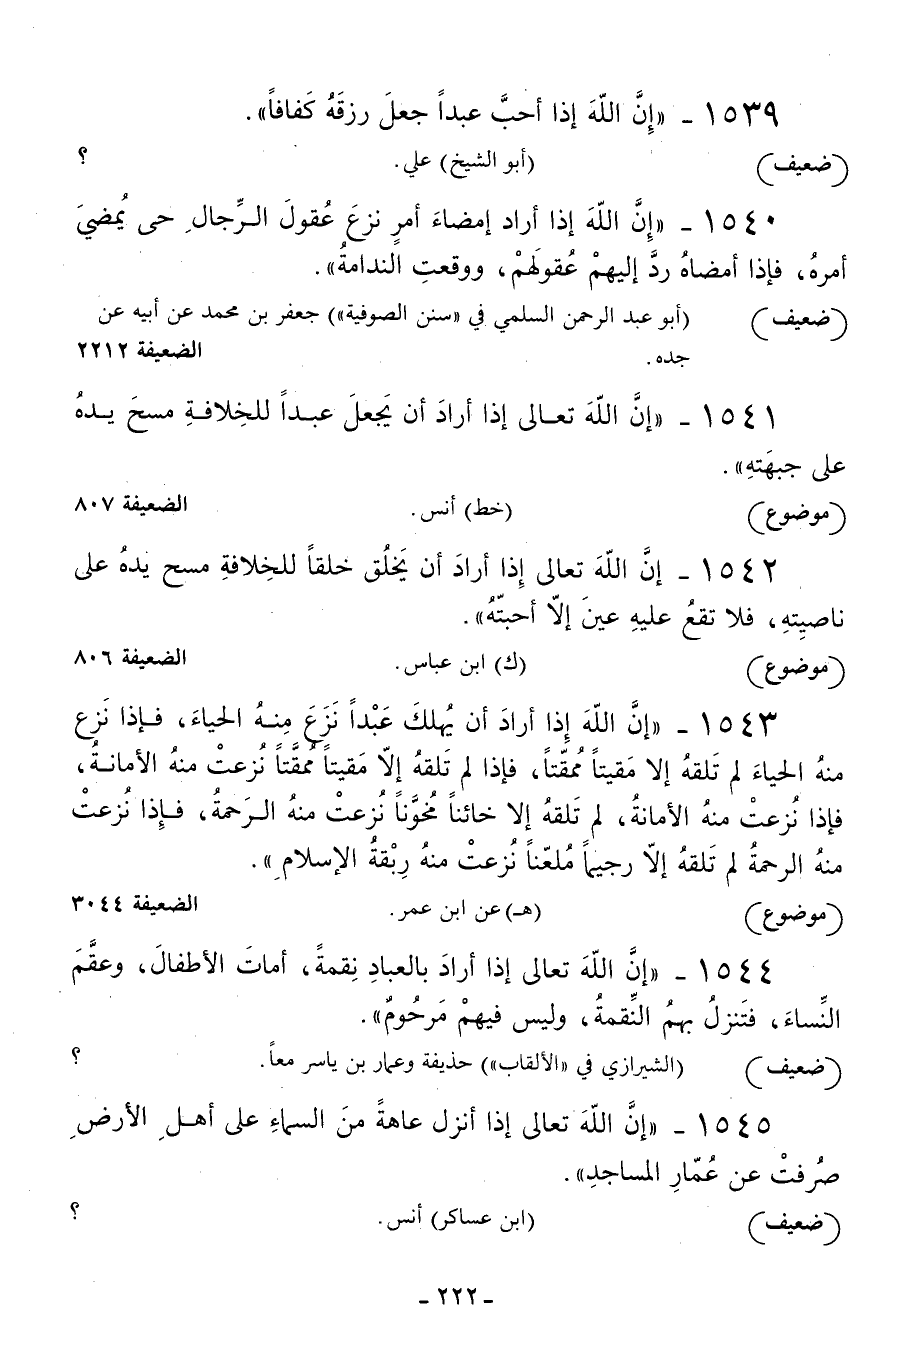 ١٥٣٩ - «إِنَّ اللّهَ إذا أحبَّ عبداً جعلَ رزقَهُ كَفافاً».
(ضعيف) (أبو الشيخ) علي. ؟
١٥٤٠ - «إِنَّ اللّهَ إذا أراد إمضاءَ أمرٍ نزعَ عُقولَ الرِّجالِ حى يُمضيَ
أمرهُ، فإذا أمضاهُ ردَّ إليهمْ عُقولَهمْ، ووقعتِ الندامةُ».
(ضعيف) (أبو عبد الرحمن السلمي في «سنن الصوفية») جعفر بن محمد عن أبيه عن
جده. الضعيفة ٢٢١٢
١٥٤١ - «إنَّ اللّهَ تعالى إذا أرادَ أن يَجعلَ عبداً للخِلافةِ مسحَ يدهُ
على جبهَتهِ».
(موضوع) (خط) أنس. الضعيفة ٨٠٧
١٥٤٢ - إنَّ اللّهَ تعالى إِذا أرادَ أن يَخلُق خلقاً للخِلافةِ مسح يدهُ على
ناصيتِهِ، فلا تقعُ عليهِ عينَ إلاّ أحبتّهُ».
(موضوع) (ك) ابن عباس. الضعيفة ٨٠٦
١٥٤٣ - «إنَّ اللّهَ إِذا أرادَ أن يُهلكَ عَبْداً نَزَعَ مِنهُ الحياءَ، فإذا نَزع
منهُ الحياءَ لم تَلقهُ إلا مَقيتاً مُمقّتاً، فإذا لم تَلقهُ إلاّ مَقيتاً مُمقَّتاً نُزعتْ منهُ الأمانةُ،
فإذا نُزعتْ منهُ الأمانةُ، لم تَلقهُ إلا خائناً مُخوَّناً نُزعتْ منهُ الرَحمةُ، فإِذا نُزعتْ
منهُ الرحمةُ لم تَلقهُ إلاّ رجيماً مُلعّناً نُزعتْ منهُ رِبْقةُ الإسلامِ».
(موضوع) (هـ) عن ابن عمر. الضعيفة ٣٠٤٤
١٥٤٤ - «إنَّ اللّهَ تعالى إذا أرادَ بالعبادِ نِقمةً، أماتَ الأطفالَ، وعقَّمَ
النِّساءَ، فتَنزلُ بهمُ النِّقمةُ، وليس فيهمْ مَرحُومٌ».
(ضعيف) (الشيرازي في «الألقاب») حذيفة وعمار بن ياسر معاً. ؟
١٥٤٥ - «إنَّ اللّهَ تعالى إذا أنزل عاهةً منَ السماءِ على أهلِ الأرضِ
صُرفتْ عن عُمّارِ المساجدِ».
(ضعيف) (ابن عساكر) أنس. ؟
- ٢٢٢ -